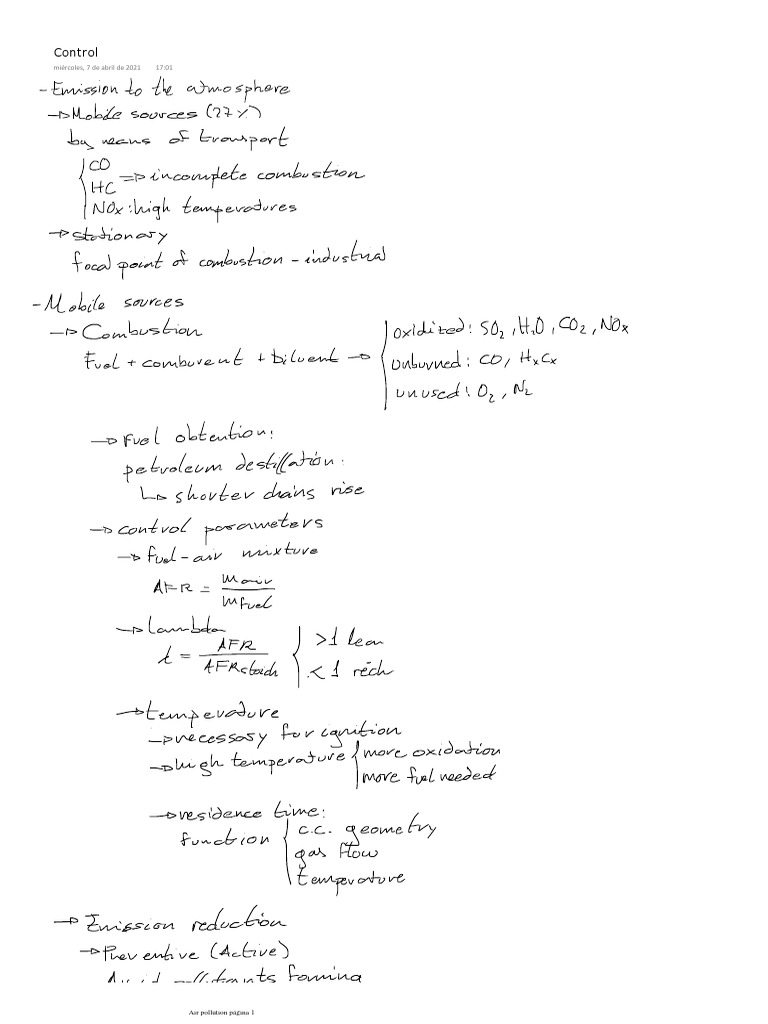 Control
miércoles, 7 de abril de 2021 17:01
- Emission to the atmosphere
→ Mobile sources (27%)
by means of transport
CO
HC => incomplete combustion
NOx: high temperatures
→ stationary
focal point of combustion - industrial
- Mobile sources
→ Combustion
Fuel + comburent + Diluent →
oxidized: SO2, H2O, CO2, NOx
Unburned: CO, HxCx
unused: O2, N2
→ Fuel obtention:
petroleum destillation:
↳ shorter chains rise
→ control parameters
→ fuel-air mixture
AFR = mair / mfuel
→ lambda
λ = AFR / AFRstoich { >1 lean
<1 rich
→ temperature
→ necessary for ignition
→ high temperature { more oxidation
more fuel needed
→ residence time:
function { c.c. geometry
gas flow
temperature
→ Emission reduction
→ Preventive (Active)
Avoid pollutants forming
Air pollution página 1